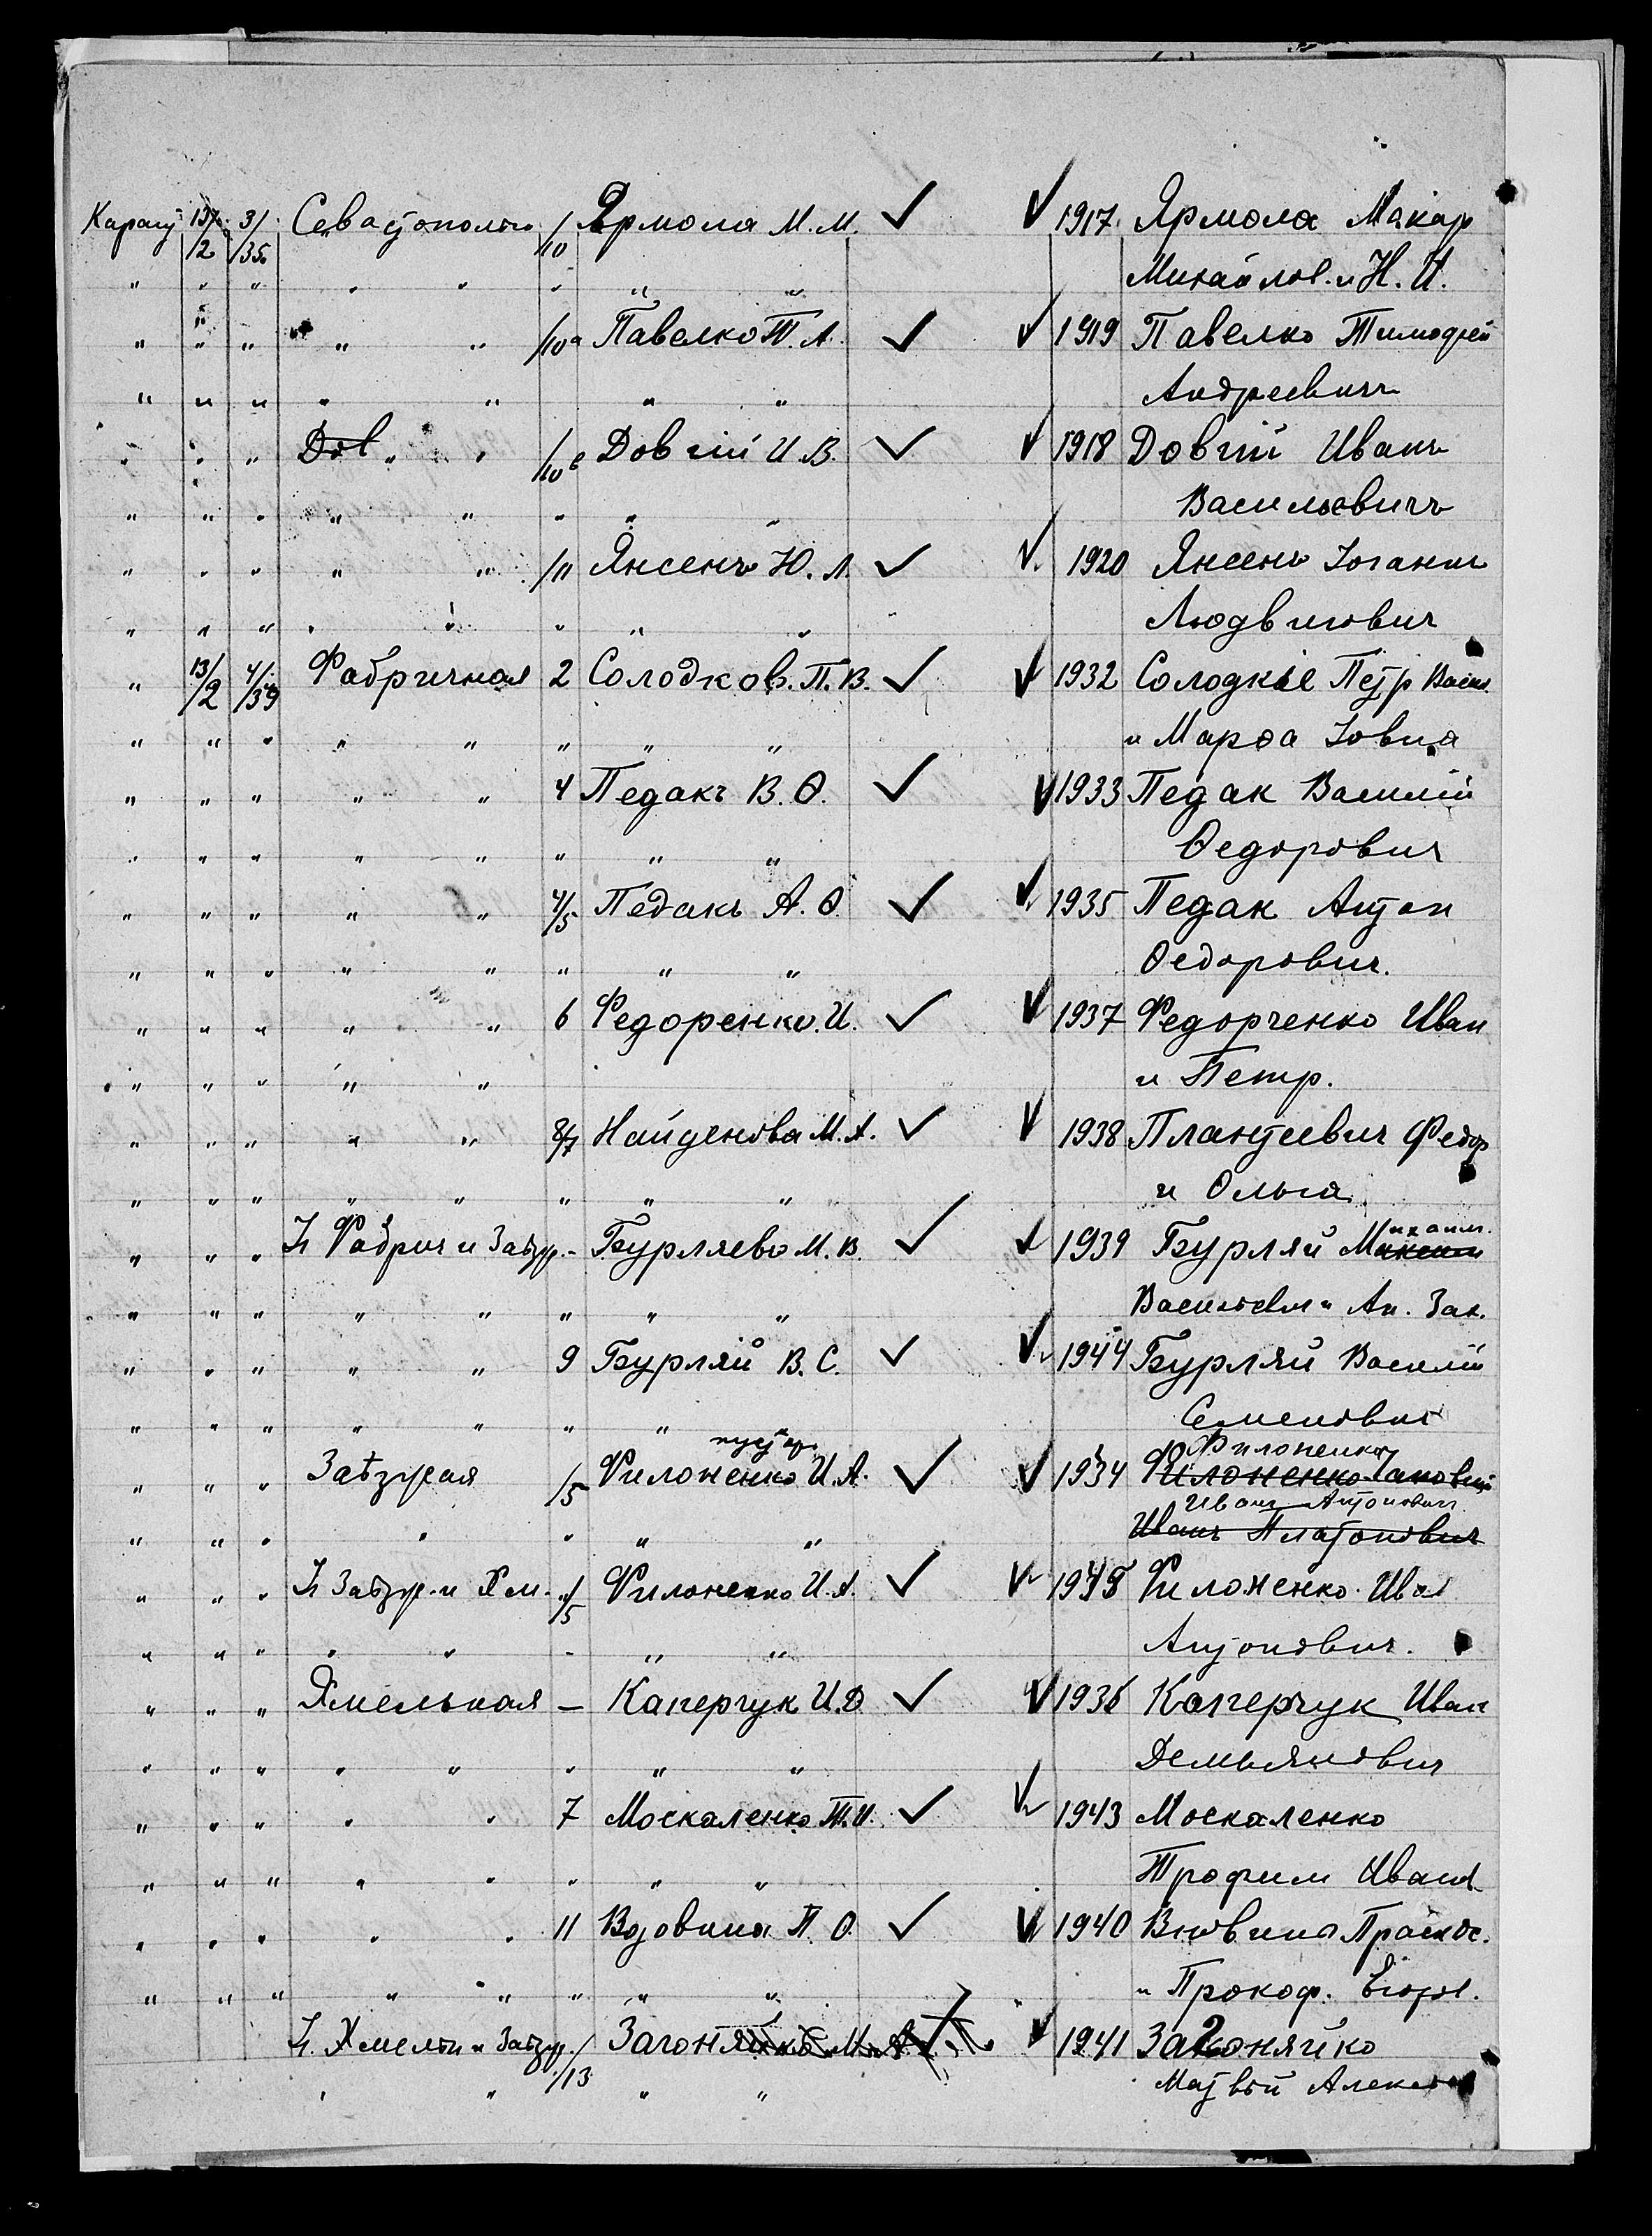 Севастополь /10 Ярмола М.М. ✓ ✓ 1917. Ярмола Макар
" " " " " " " " Михайлов. и Н. И.
" " " " " /10а Павелко Т.А. ✓ ✓ 1919 Павелко Тимофей
" " " " " " " Андреевичъ
" " " Дов " " /10б Довгiй И.В. ✓ ✓ 1918 Довгiй Иванъ
" " " " " " " " Васильевичъ
" " " " " /11 Янсенъ Ю.Л. ✓ ✓ 1920 Янсенъ Iоганнъ
" " " " " " " " Людвигович
" 13/2 4/39 Фабричная 2 Солодков. П.В. ✓ ✓ 1932 Солодкие Петр Васил
" " " " " " " " и Марфа Iовна
" " " " " 4 Педакъ В.Ѳ. ✓ ✓ 1933 Педак Василiй
" " " " " " " " Ѳедорович
" " " " " 4/5 Педакъ А.Ѳ. ✓ ✓ 1935 Педак Антон
" " " " " " " " Ѳедорович.
" " " " " 6 Федоренко. И. ✓ ✓ 1937 Федорченко Иван
" " " " " и Петр.
" " " " " 8/7 Найденова М.А. ✓ ✓ 1938 Плантеевич Федор
" " " " " " " " и Ольга
" " " Фабрич и Заѣзж. - Бурляево М.В. ✓ ✓ 1939 Бурляй Михаил.
" " " " " " " " Васильевич и Ан. Зах.
" " " " " 9 Бурляй В.С. ✓ ✓ 1944 Бурляй Василiй
" " " " " " " Семенович
" " " Заѣзжая /5 Филоненко И.А. ✓ ✓ 1934 Филоненко
Иванъ Антонович
" " " " " " " Иванъ Платонович
" " " Заѣзж. и Хм. /5 Филоненко И.А. ✓ ✓ 1945 Филоненко Иван
" " " " " - " " Антонович.
" " " Хмельная - Каперчук И.Д. ✓ ✓ 1936 Каперчук Иван
" " " " " " " " Демьянович
" " " " " 7 Москаленко Т.И. ✓ ✓ 1943 Москаленко
" " " " " " " " Трофим Иван
" " " " " 11 Вдовина П.Ѳ. ✓ ✓ 1940 Вдовина Праск.
" " " " " " " " и Прокоф. Егоров.
Хмельн и Заѣзж. /13 Загоняйко М.А. ✓ 1941 Загоняйко
" " " " Матвѣй